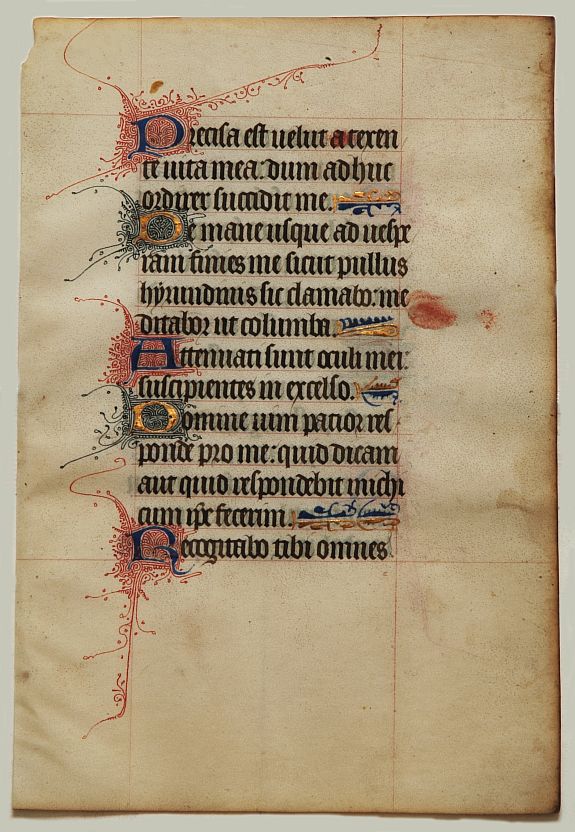 Precisa est uelut a texen
te uita mea: dum adhuc
ordirer succidit me.
De mane usque ad uespe
ram finies me sicut pullus
hyrundinis sic clamabo: me
ditabor ut columba.
Attenuati sunt oculi mei:
suscipientes in excelso.
Domine uim patior res
ponde pro me: quid dicam
aut quid respondebit michi
cum ip̄e fecerim.
Recogitabo tibi omnes